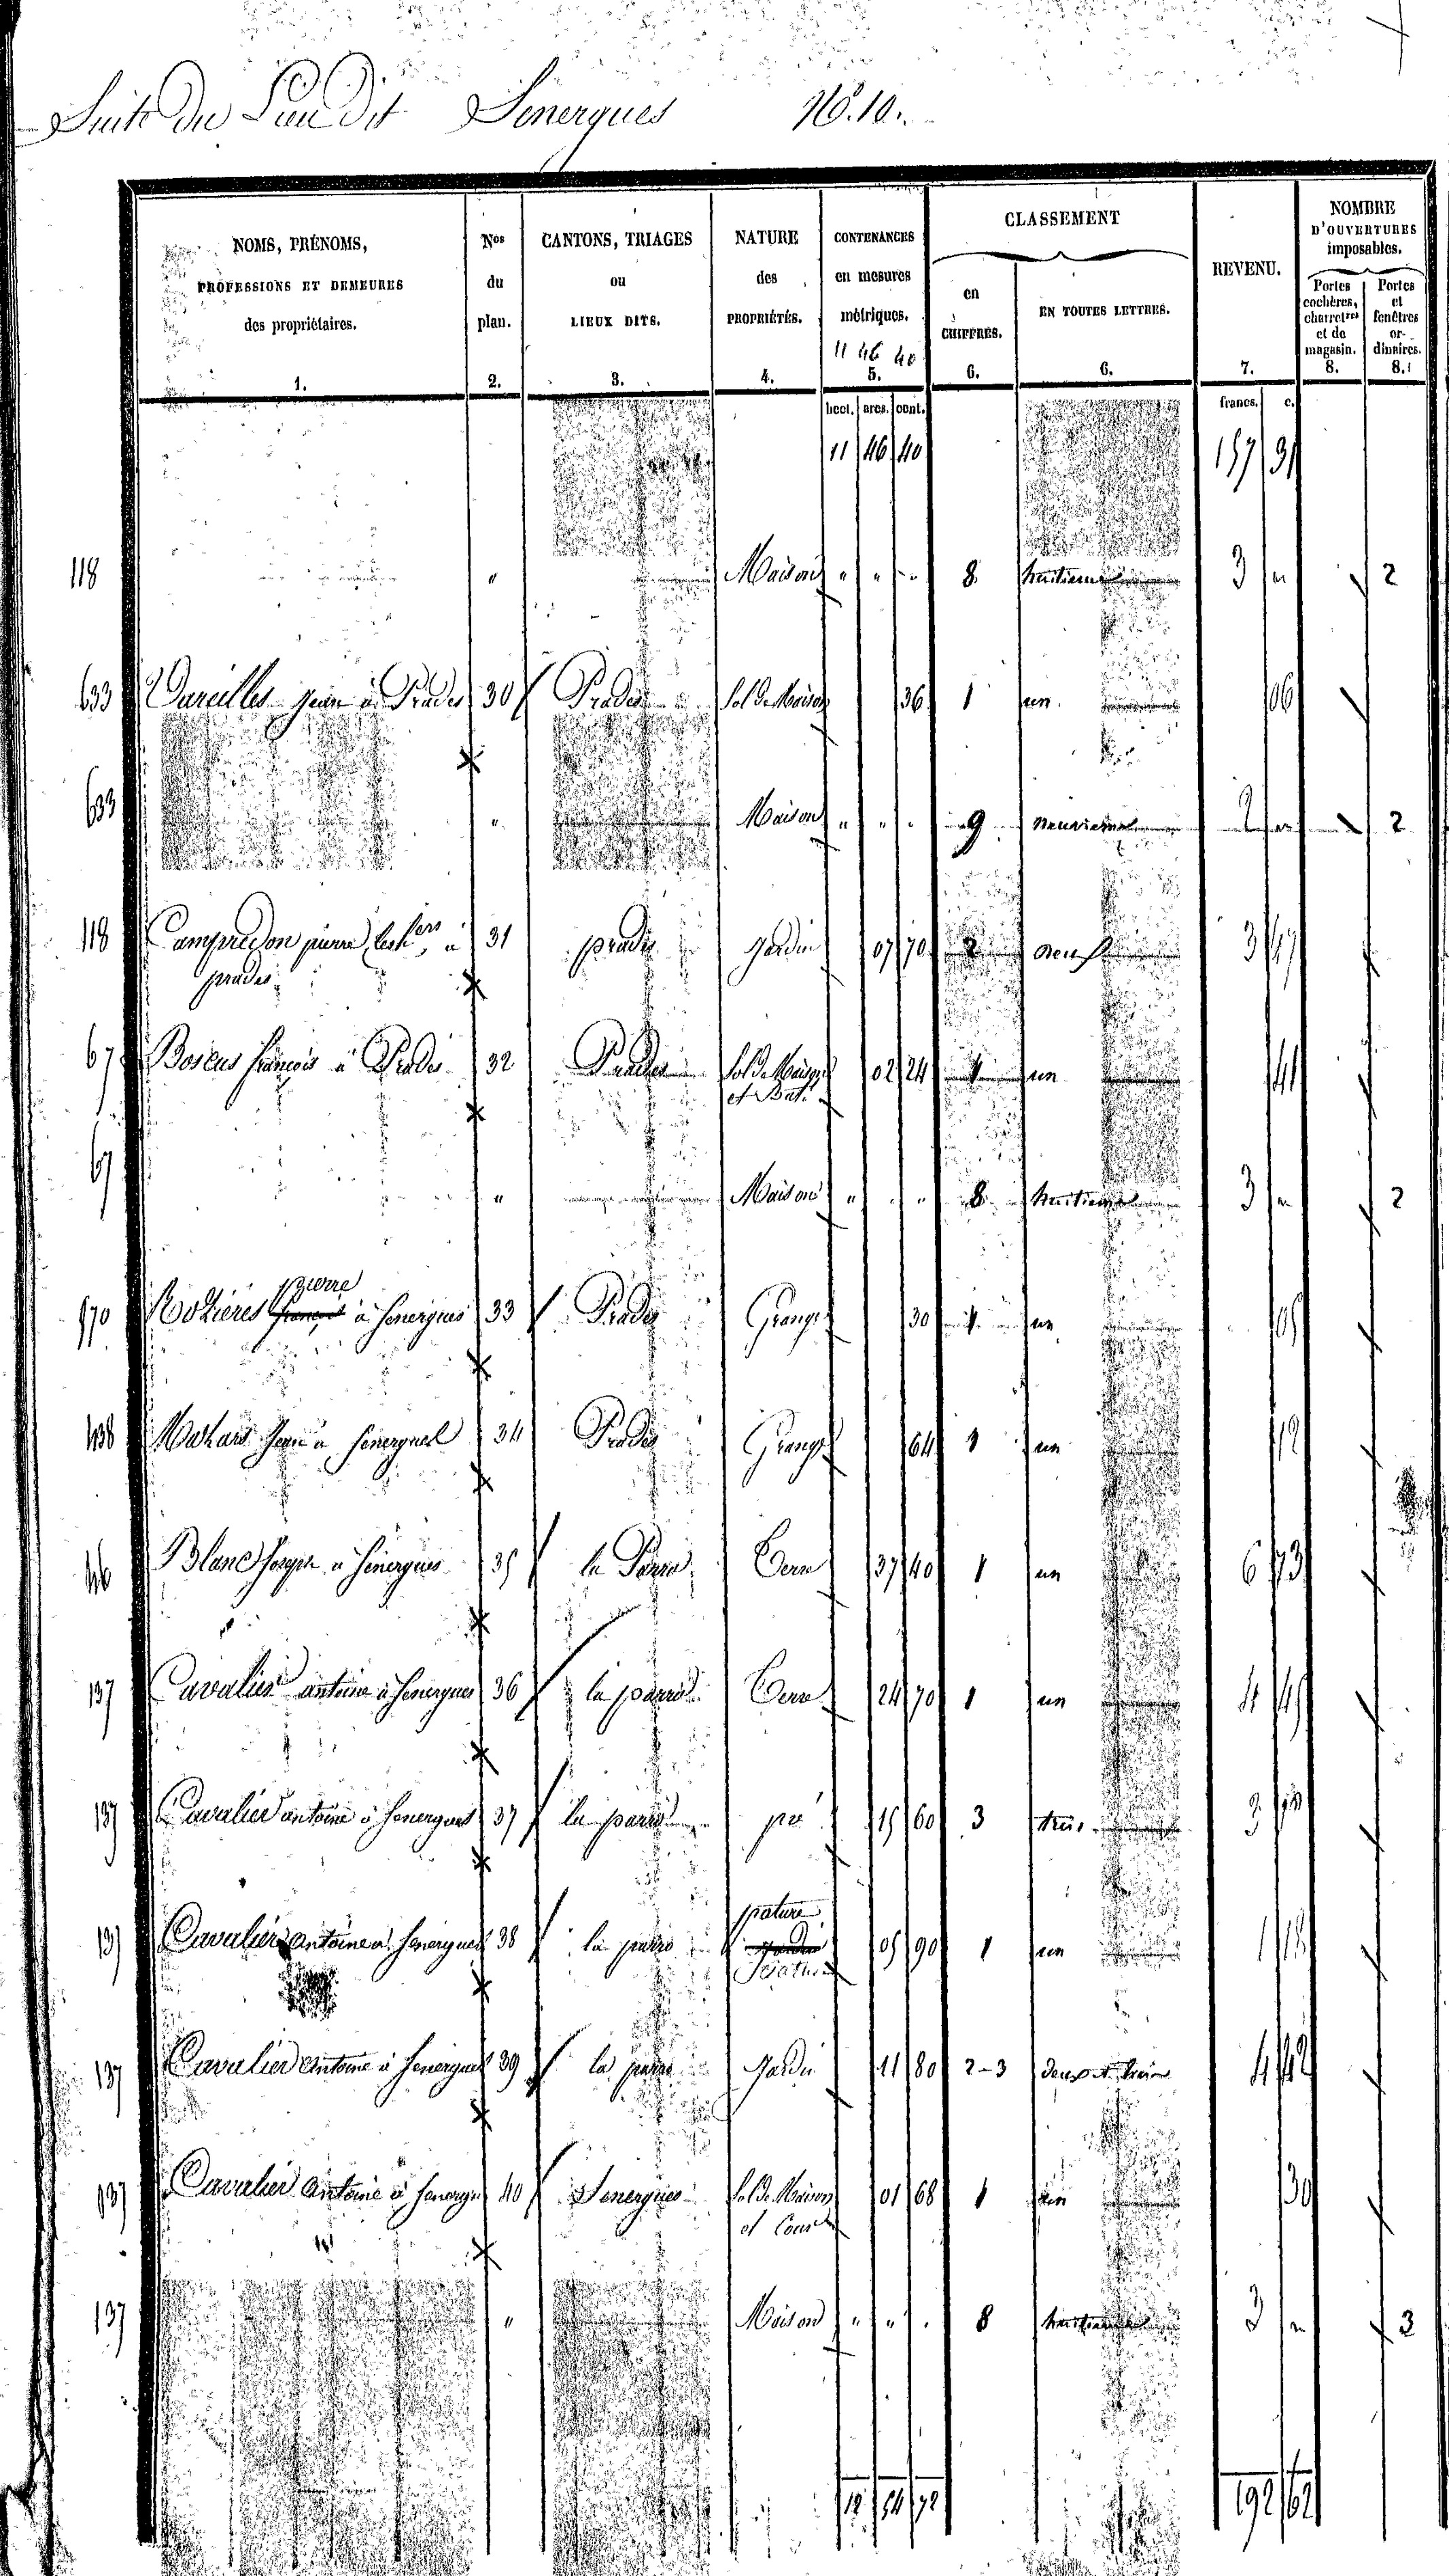 Suite du Lieu dit Senergues N°. 10.
NOMS, PRÉNOMS,
PROFESSIONS ET DEMEURES
des propriétaires.
1.
Nos
du
plan.
2.
CANTONS, TRIAGES
ou
LIEUX DITS.
3.
NATURE
des
PROPRIÉTÉS.
4.
CONTENANCES
en mesures
métriques.
11 46 40
5.
CLASSEMENT
en
CHIFFRES.
6.
EN TOUTES LETTRES.
6.
REVENU.
7.
NOMBRE
D'OUVERTURES
imposables.
Portes
cochères,
charretres
et de
magasin.
8.
Portes
et
fenêtres
or-
dinaires.
8.
hect. ares. cent. francs. c.
11 46 40 157 31
118 " Maison " " " 8 huitieme 3 " 2
633 Jean à Prades 30 Prades Sol de Maison 36 1 un 06
633 " Maison " " " 9 neuvieme 2 " 2
118 Campredon pierre, à 31 prades Jardin 07 70 2 3 47
prades
67 Boscus francois à Prades 32 Prades Sol de Maison 02 24 1 un 41
et Bat.
67 " Maison " " " 8 huitieme 3 " 2
pierre
570 Rozieres francois à Senergues 33 Prades Grange 30 1 un 05
438 Jean à Senergues 34 Prades Grange 64 1 un 12
46 Blanc Joseph à Senergues 35 la Parro Terre 37 40 1 un 6 73
137 Cavalier antoine à Senergues 36 la parro Terre 24 70 1 un 4 45
137 Cavalier antoine à Senergues 37 la parro pré 15 60 3 trois 3
pature
137 Cavalier antoine à Senergues 38 la parro Jardin 05 90 1 un 1
Pature
137 Cavalier Antoine à Senergues 39 la parro Jardin 11 80 2-3 deux et trois 4 42
137 Cavalier Antoine à Senergues 40 Senergues Sol de Maison 01 68 1 un 30
et Cour
137 " Maison " " " 8 huitieme 3 " 3
12 54 72 192 62